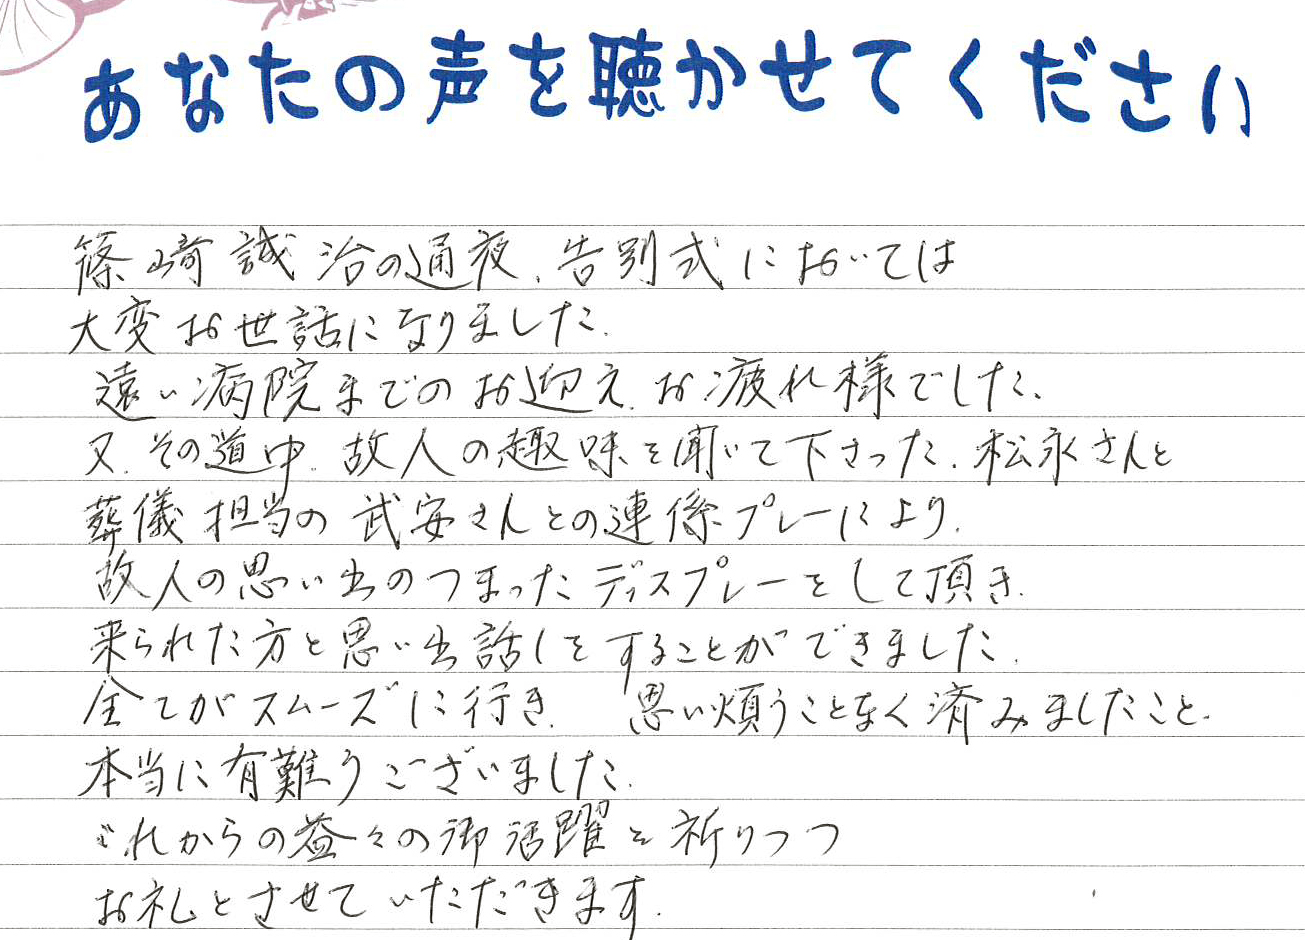 あなたの声を聴かせてください
篠崎誠治の通夜、告別式においては
大変お世話になりました。
遠い病院までのお迎え、お疲れ様でした。
又、その道中、故人の趣味を聞いて下さった、松永さんと
葬儀担当の武安さんとの連係プレーにより、
故人の思い出のつまったディスプレーをして頂き、
来られた方と思い出話しをすることができました。
全てがスムーズに行き、思い煩うことなく済みましたこと、
本当に有難うございました。
これからの益々の御活躍を祈りつつ
お礼とさせていただきます。